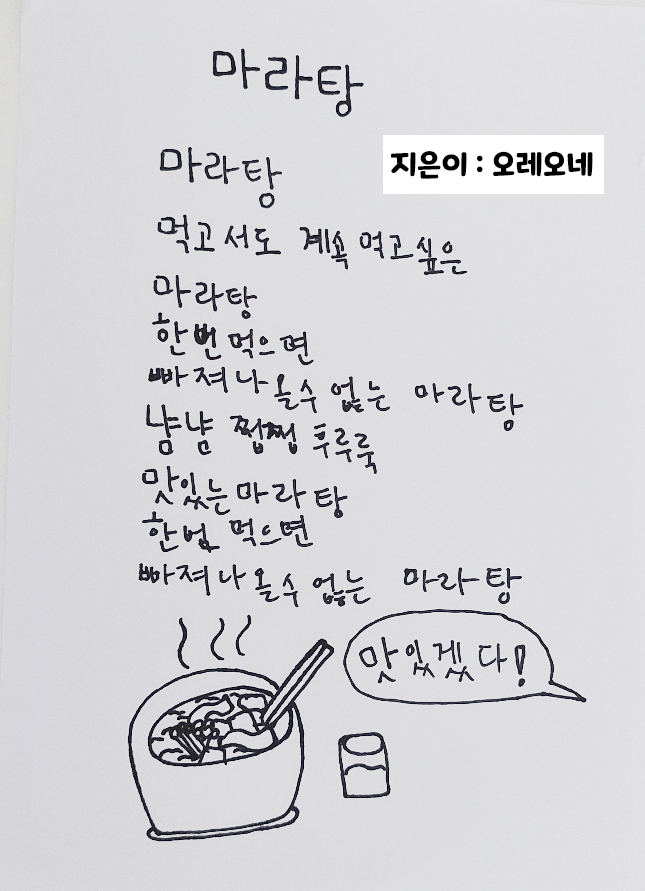 마라탕
지은이 : 오레오네
마라탕
먹고서도 계속 먹고싶은
마라탕
한번먹으면
빠져나올수 없는 마라탕
냠냠 쩝쩝 후루룩
맛있는마라탕
한번 먹으면
빠져나올수 없는 마라탕
맛있겠다!